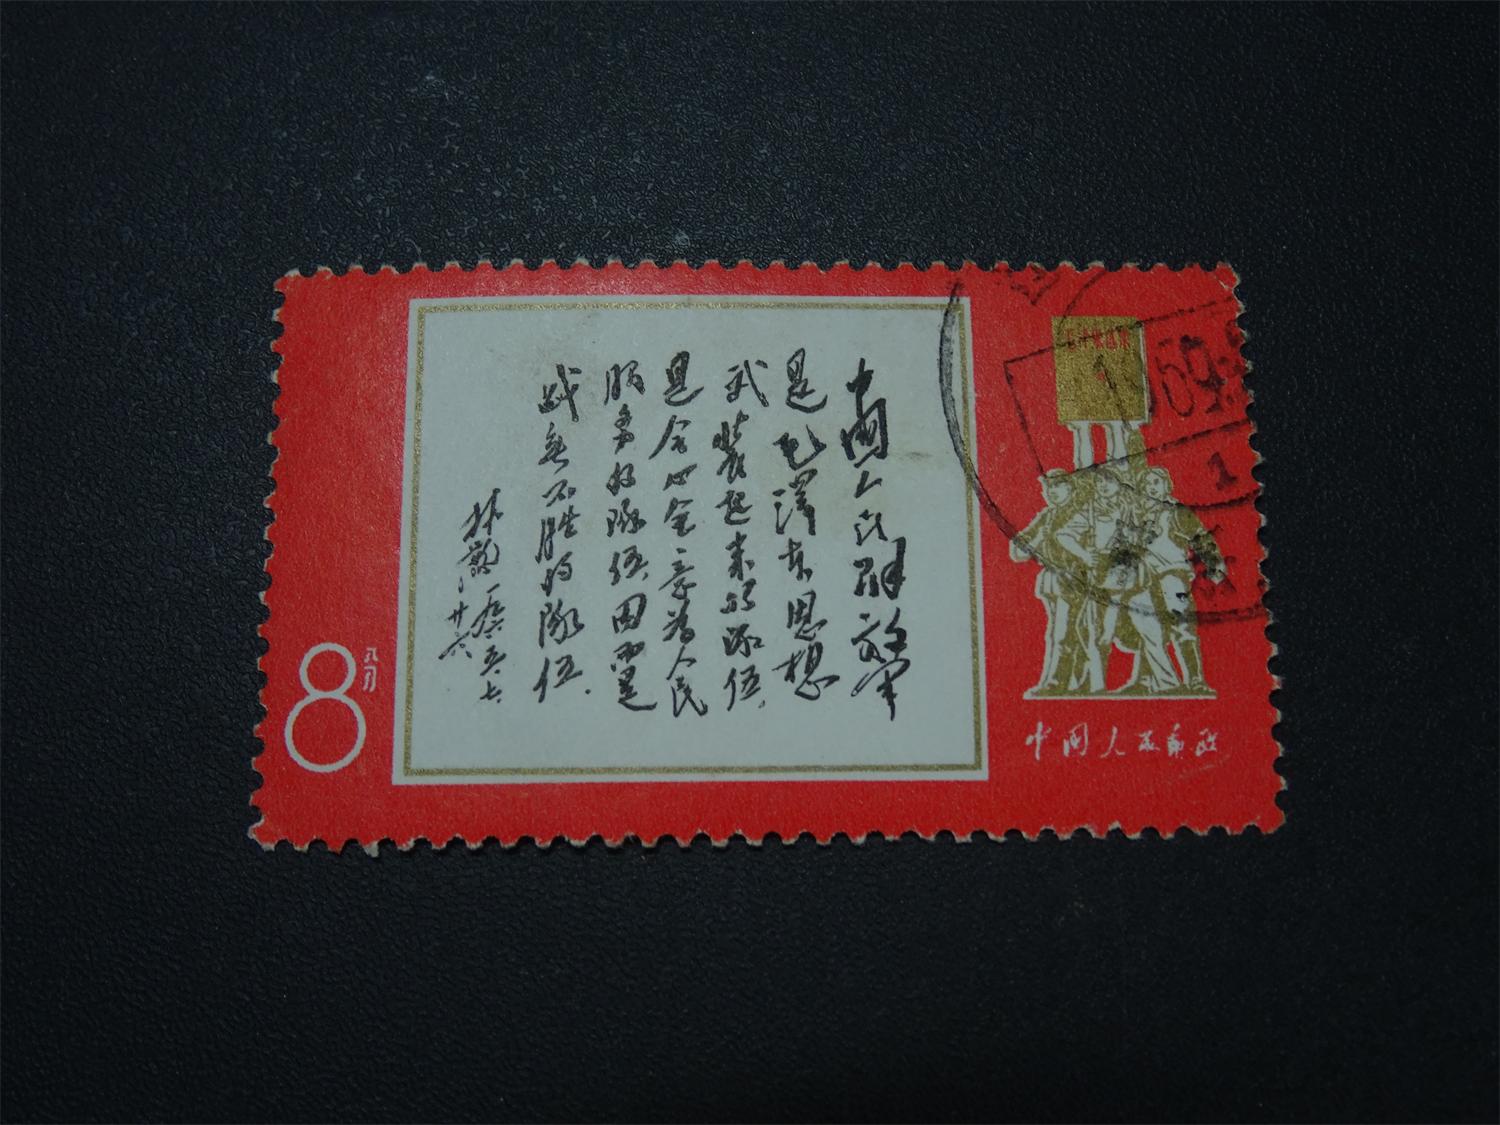 中國人民解放军
是毛澤东思想
武裝起来的隊伍，
是全心全意为人民
服务的隊伍，因而是
战無不胜的隊伍．
林彪 一九六五、七、
廿六
8 八分
中国人民邮政